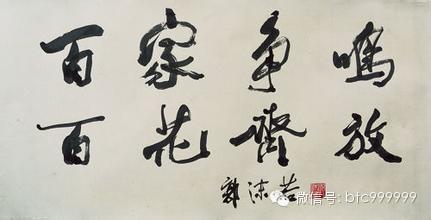 百家争鸣
百花齊放
郭沫若
微信号: btc999999